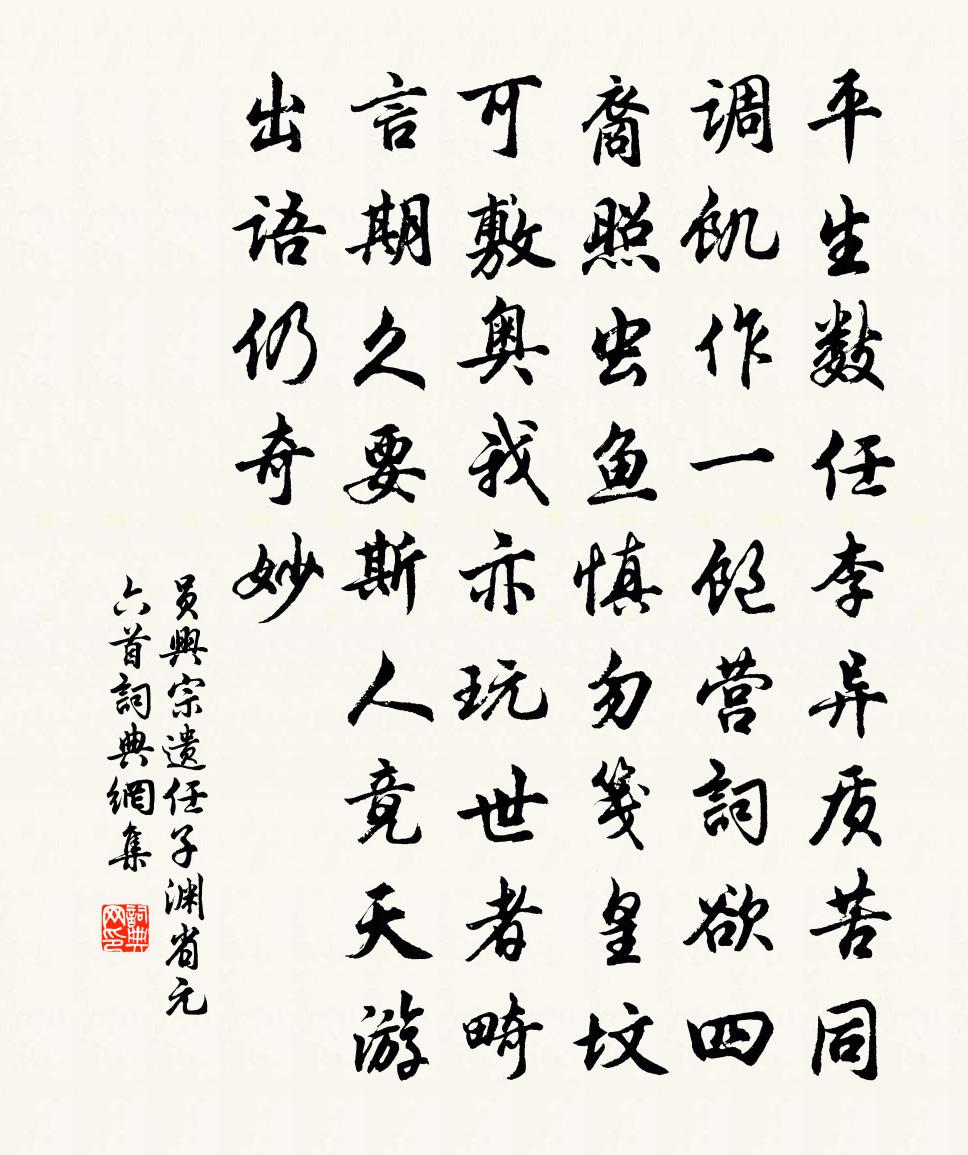 平生数任李异质苦同
调饥作一饱营詞欲四
裔照虫鱼慎勿笺皇坟
可敷奥我亦玩世者畸
言期久要斯人竟天游
出语仍奇妙
员興宗遗任子渊省元
六首詞典網集
詞典网印